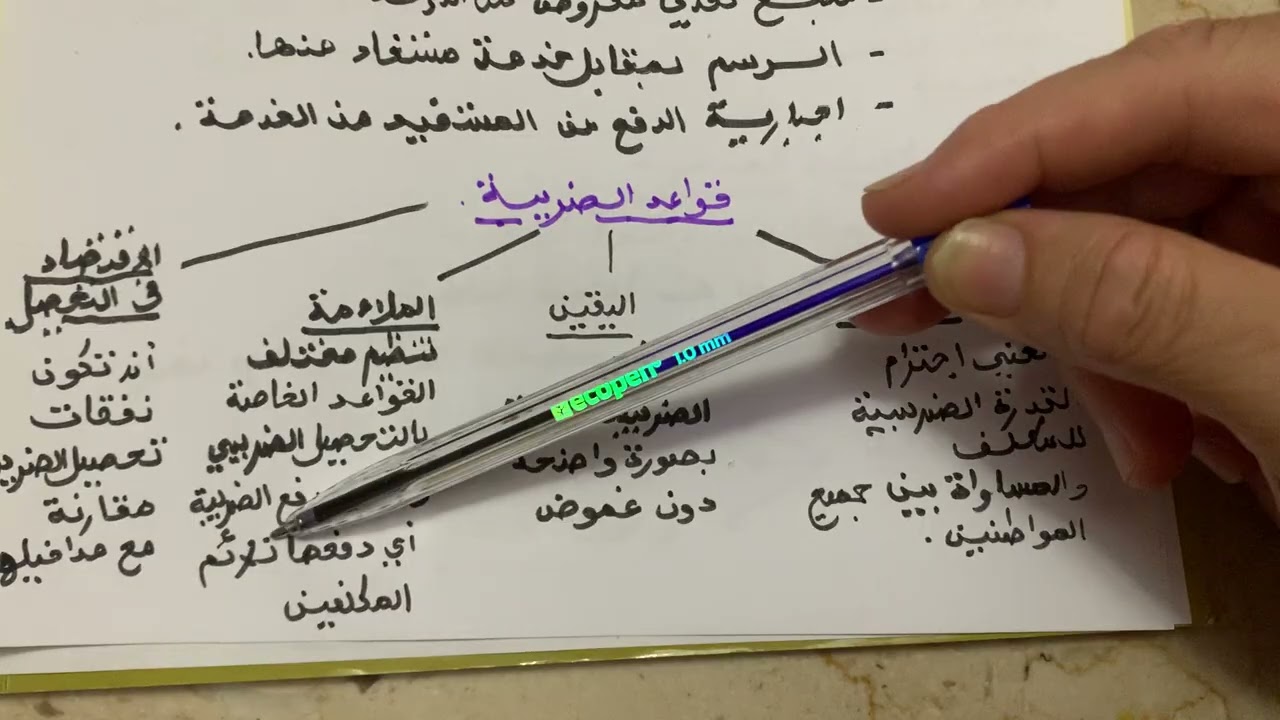 - الرسم بمقابل خدمة مستفاد منها.
- اجبارية الدفع من المستفيد من الخدمة.
قواعد الضريبة.
احترام
القدرة الضريبية
للمكلف
والمساواة بين جميع
المواطنين.
اليقين
الضريبة
بصورة واضحة
دون غموض
الملاءمة
تنظيم مختلف
القواعد الخاصة
بالتحصيل الضريبي
الضريبة
أي دفعها تلائم
المكلفين
الاقتصاد
في التحصيل
أن تكون
نفقات
تحصيل
مقارنة
مع مداخيلها
ecopen 1.0 mm